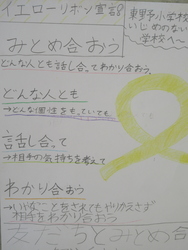 イエローリボン宣言
東野小学校
いじめのない
〜学校へ〜
みとめ合おう
どんな人とも話し合ってわかり合おう。
どんな人とも
→どんな個性をもっていても
話し合って
→相手の気持ちを考えて
わかり合おう
→いやなことをされてもやりかえさず
相手をわかり合おう
友だちとみとめ合おう